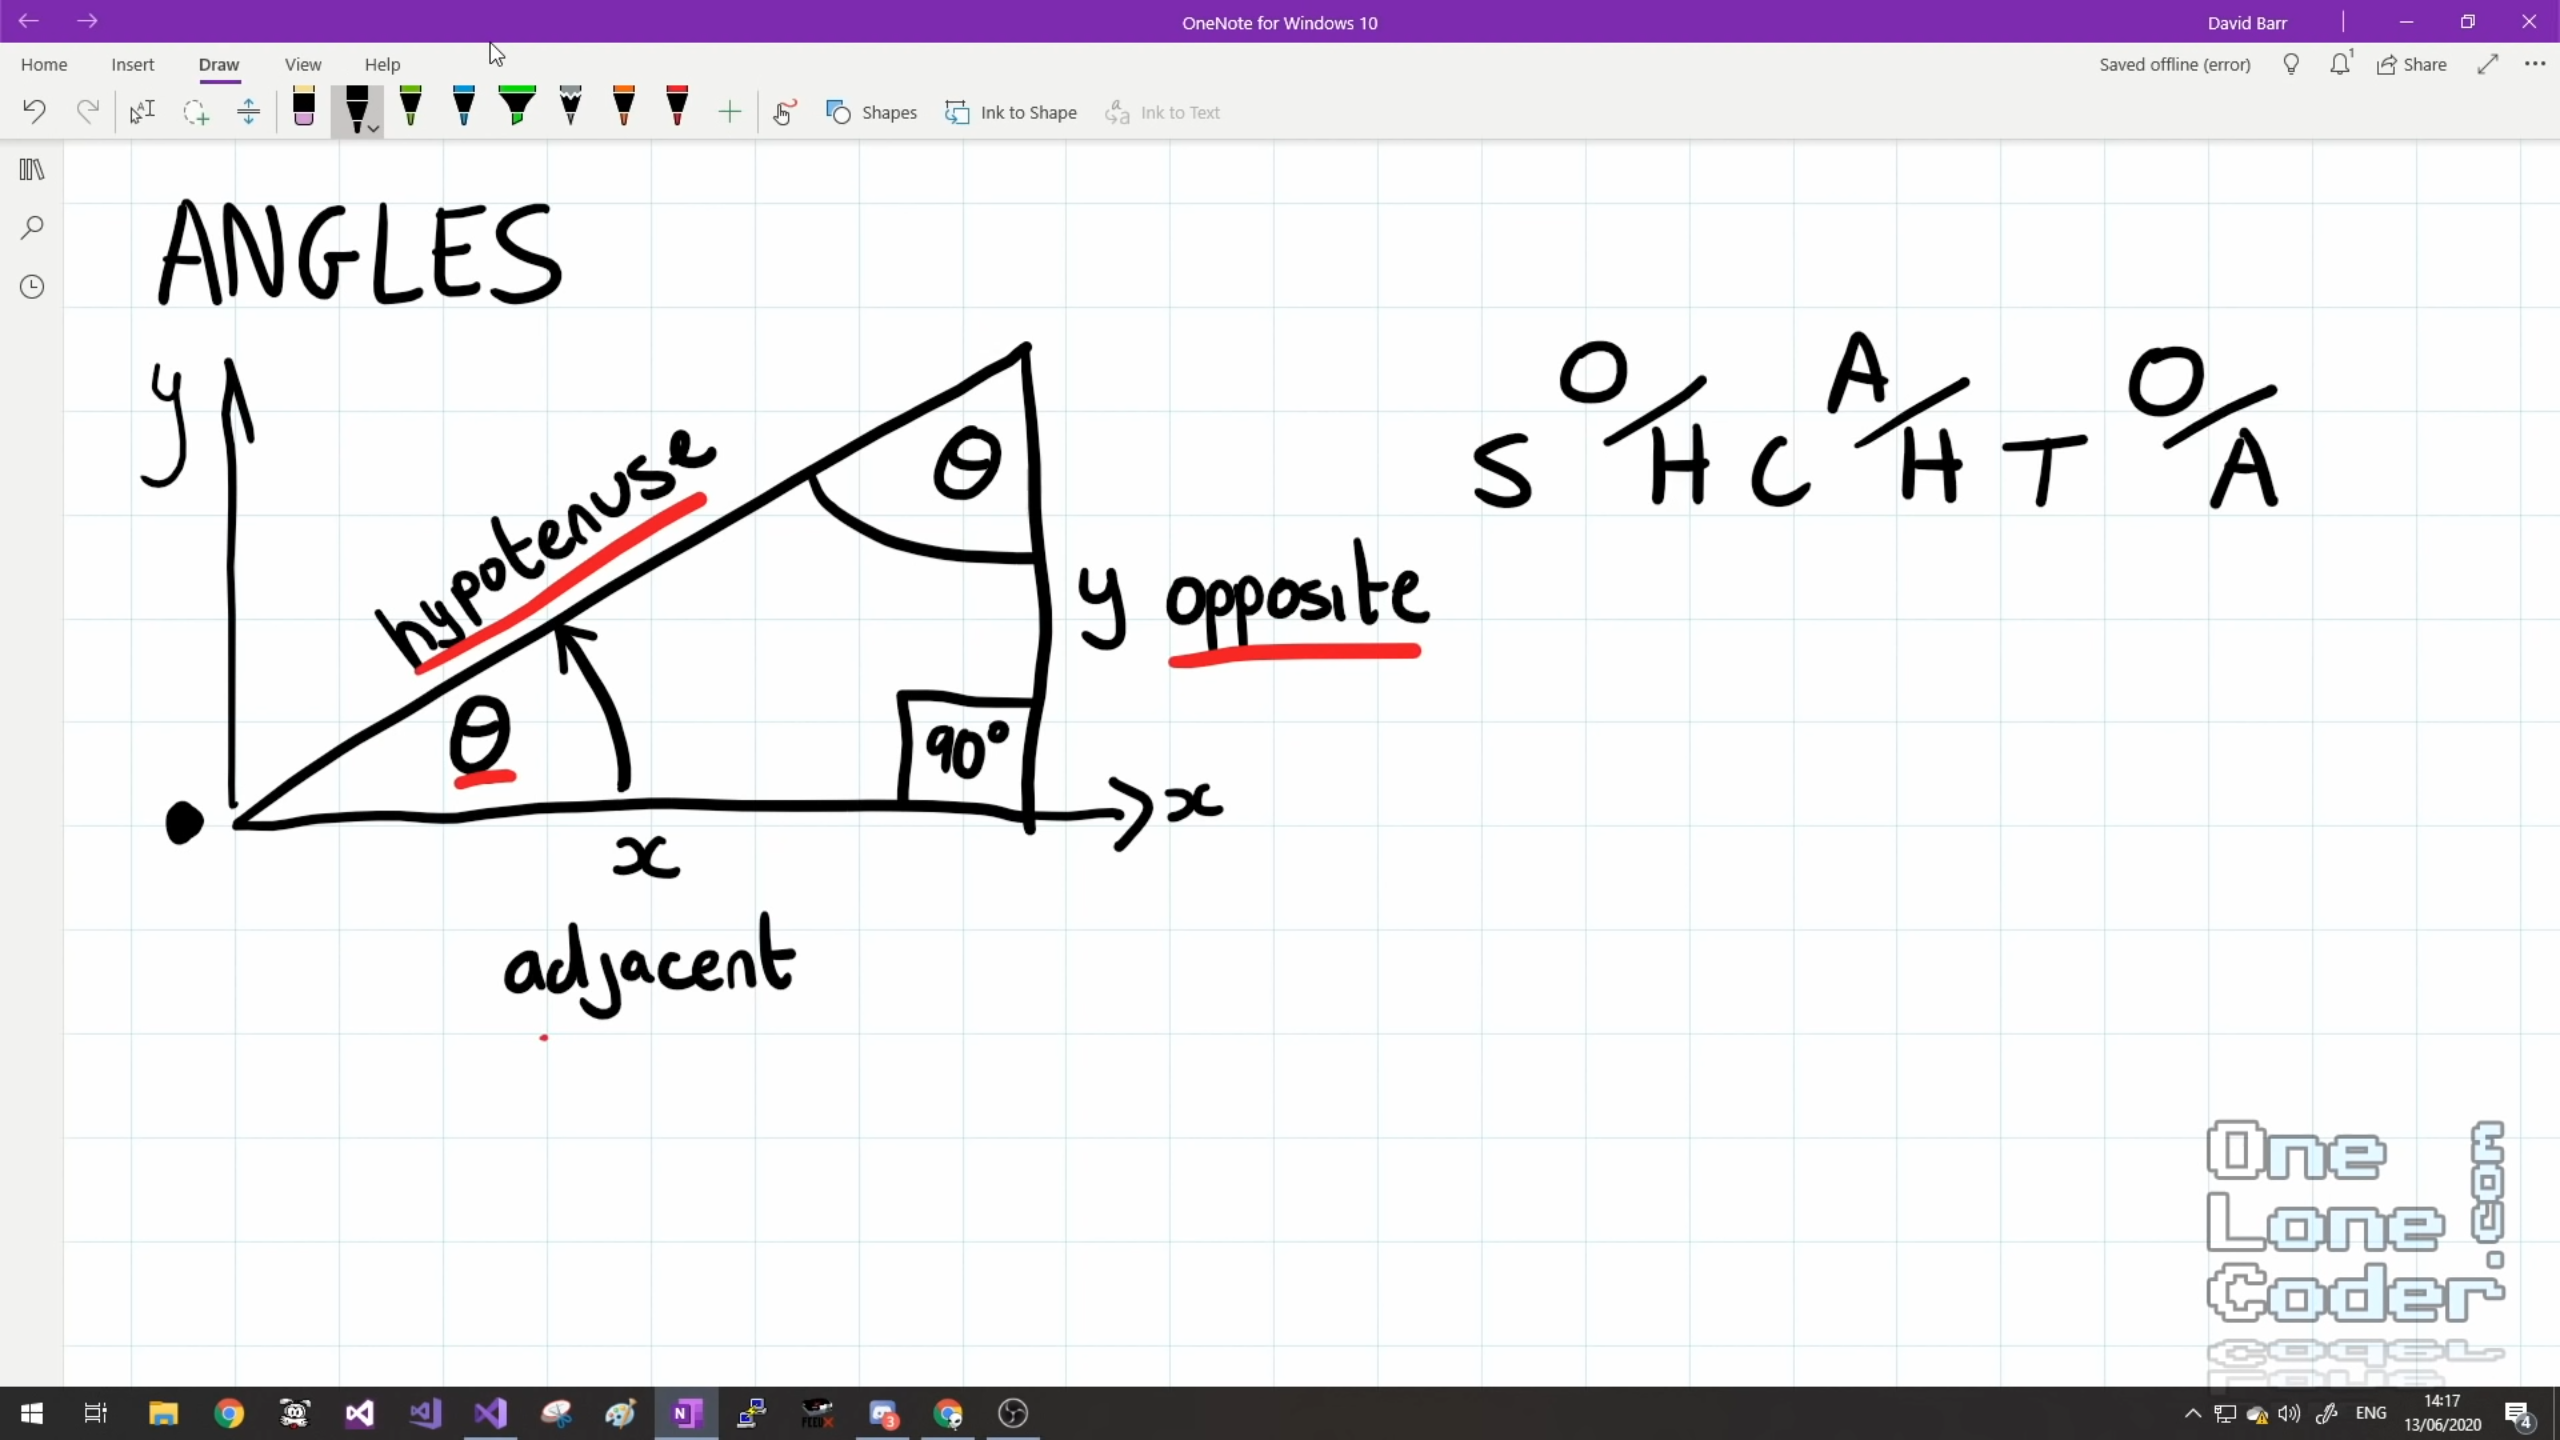 OneNote for Windows 10
David Barr
Home Insert Draw View Help
Saved offline (error) 1 Share
Shapes Ink to Shape Ink to Text
ANGLES
y
hypotenuse
θ
S O/H C A/H T O/A
y opposite
θ
90°
x
x
adjacent
One
Lone
Coder
.com
N
FEED
3
ENG
14:17
13/06/2020
4